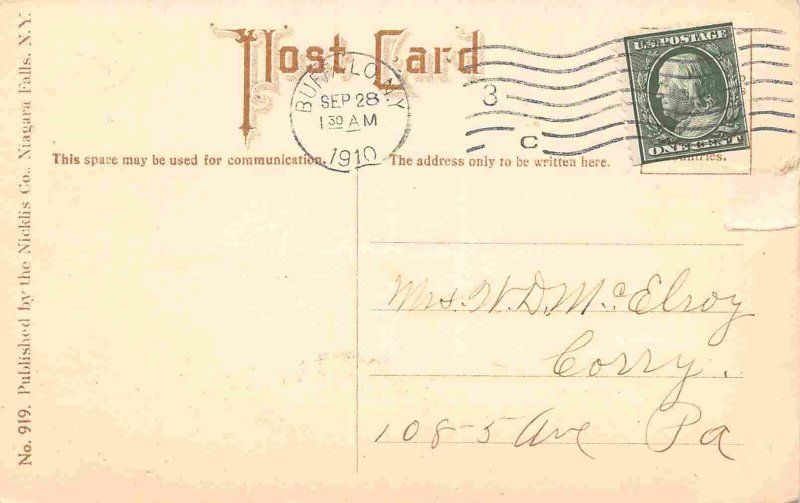 Post Card
BUFFALO, N.Y.
SEP 28
1 30 AM
1910
3
C
U.S. POSTAGE
ONE CENT
This space may be used for communication.
The address only to be written here.
Mrs. W. D. McElroy
Corry.
108-5 Ave Pa
No. 919. Published by the Nicklis Co., Niagara Falls. N. Y.